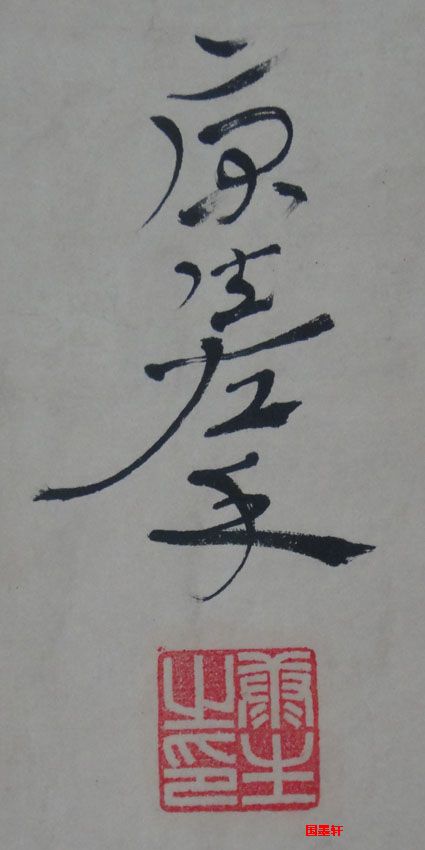 康生左手
康生之印
国墨轩